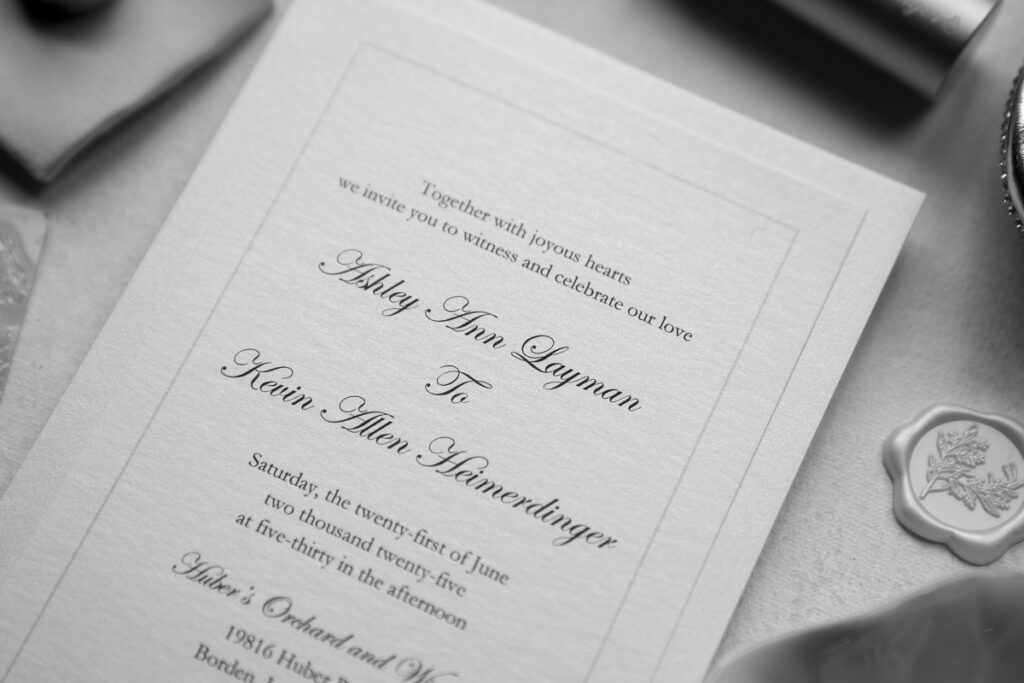 Together with joyous hearts
we invite you to witness and celebrate our love
Ashley Ann Layman
To
Kevin Allen Heimerdinger
Saturday, the twenty-first of June
two thousand twenty-five
at five-thirty in the afternoon
Huber's Orchard and
19816 Huber
Borden,